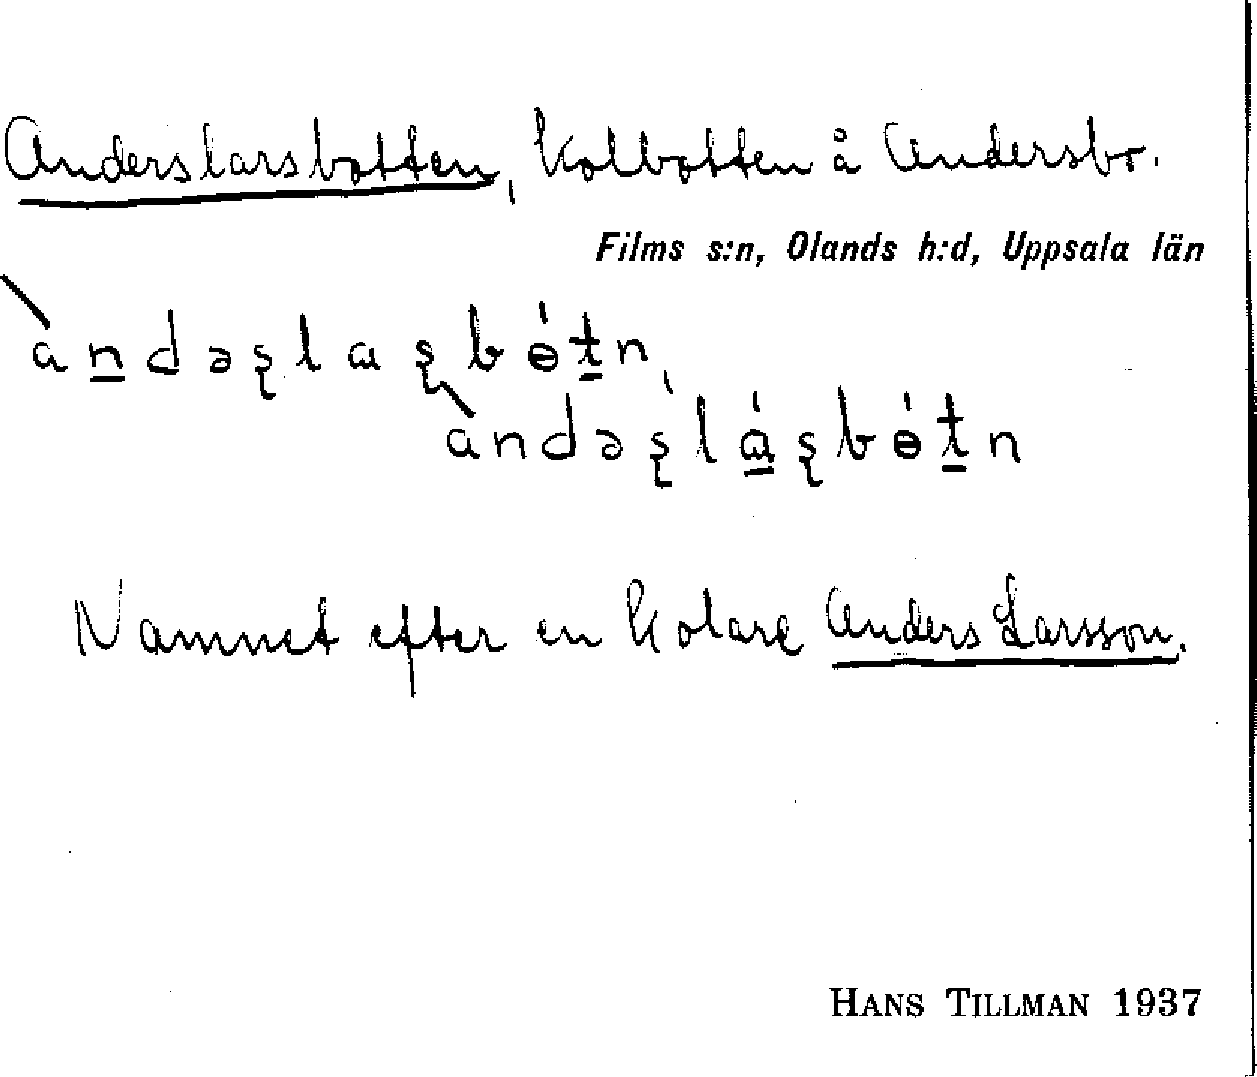 Anderslarsbotten, kolbotten å Andersbo.
Films s:n, Olands h:d, Uppsala län
àn̲dəʂlɑʂbɵ́t̲n,
àndəʂlɑ̲́ʂbɵ́t̲n
Namnet efter en kolare Anders Larsson.
HANS TILLMAN 1937